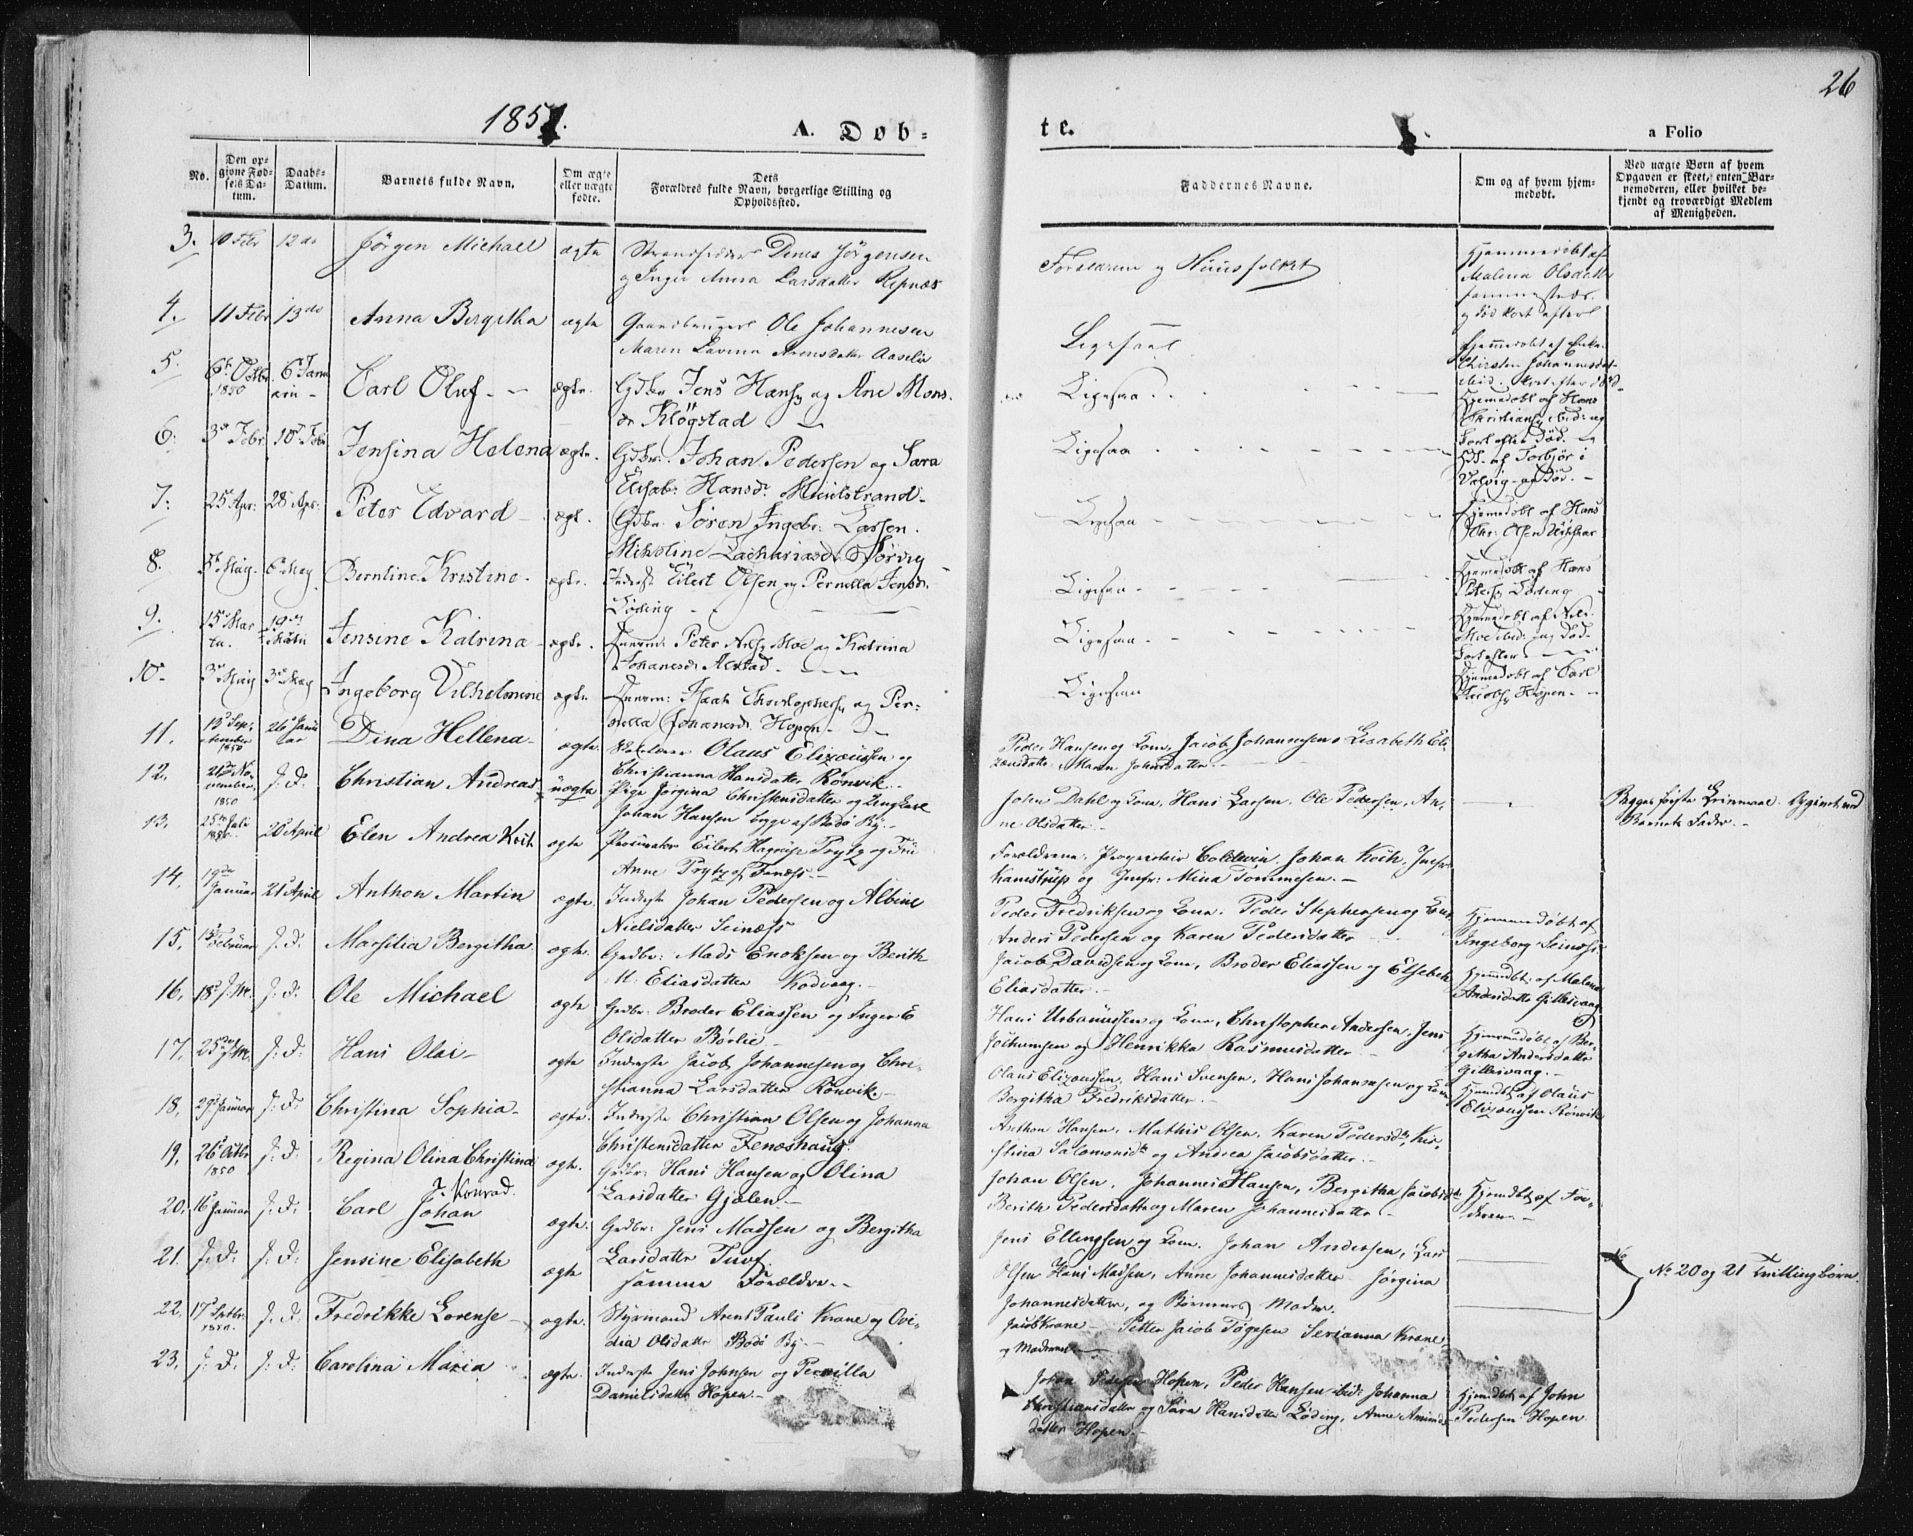 26
1851.
A. Døb-
te.
a Folio
No.
Den op-
givne Fød-
sels Da-
tum.
Daabs-
Datum.
Barnets fulde Navn.
Om ægte
eller uægte
fødte.
Dets
Forældres fulde Navn, borgerlige Stilling og
Opholdssted.
Faddernes Navne.
Om og af hvem hjem-
medøbt.
Ved uægte Børn af hvem
Opgaven er skeet, enten Bar-
nemoderen, eller hvilket be-
kjendt og troværdigt Medlem
af Menigheden.
3. 10 Febr 12 do Jørgen Michael ægte Strandsidder Denes Jørgensen
og Inger Anna Larsdatter Repnæs
Forældrene og Huusfolket
Hjemmedøbt af
Malena Olsdatter
sammesteds
og død kort efter
4. 11 Febr 13 do Anna Bergitha ægte Gaardbruger Ole Johannesen
Maren Lavina Arensdatter Aaselie
Ligesaa
Hjemmedøbt af Enke
Kirsten Johannesdat
ibid. kort efter død
5. 6te Octbr 1850 6te Janu
arii Carl Oluf ægte. Gdbr Jens Hansen og Ane Mons
dr Kløgstad
Ligesaa
Hjemedøbt af Hans
Christians. ibid: og
kort efter død.
6: 3die Febr. 10de Febr Jensina Helena ægte. Gdbr: Johan Pedersen og Sara
Elisab: Hansdr. Hiulstrand
Ligesaa
7: 25 Apr: 28 Apr. Peter Edvard ægt. Gdbr. Søren Ingebr: Larsen.
Mikoline Zachariasdr Størvig
Ligesaa
Hjemedøbt af Hans
Chr: Olsen
8. 5te May. 6te May Berntine Kristine. ægte. Inderst Eilert Olsen og Pernella Jensdr.
Løding
Ligesaa
Hjemedøbt af Hans
Peters. Løding
9. 15de Mar
ts. 19de
Martii Jensine Katrina ægte. Inderst: Peter Niels. Moe og Katrina
Johanesdr Alstad
Ligesaa
10. 3de May 3de May Ingeborg Vilhelmine ægte. Inderst: Isaak Christophers. og Per-
nella Johanesdr Hopen
Ligesaa
Hjemedøbt af Carl
Jacobs. Hopen.
11. 13de Sep-
tember
1850 26de Janu
ar Dina Hellena ægte. Skolelærer Olaus Elizæussen og
Christianna Hansdatter Rønvik.
Peder Hansen og Kone, Jacob Johannesen, Lisabeth Eli-
zæusdatter, Maren Johnsdatter.
12. 21de No-
vember
1850 J. D. Christian Andreas uægte Pige Jørgina Christensdatter og Ungkarl
Johan Hansen begge af Bodø By.
John Dahl og Kone, Hans Larsen. Ole Pedersen, An-
ne Olsdatter.
Begges første Leiermaal. Opgivet ved
Barnets Fader.
13. 25de Juli
1850. 20 April Elen Andrea Koch ægte Procurator Eilert Hagerup Prytz og Frü
Anne Prytz af Fenæss.
Forældrene, Proprietair Coldevin, Johan Koch, Jmfr.
Kamstrup og Jmfr: Mina Tommesen.
14. 19de
Januar 21de April Anthon Martin ægte. Inderste Johan Pedersen og Albine
Nielsdatter Seinæss
Peder Fredriksen og Kone. Peder Stephensen og Kone
Anders Pedersen og Karen Pedersdatter
Hjemmedøbt af
Ingeborg Seinæss.
15. 13de
Februar J. D. Marsilia Bergitha ægte. Grdbr: Mads Enoksen og Berith
M: Eliasdatter Kodvaag.
Jacob Davidsen og Kone, Broder Eliassen og Elsebeth
Eliasdatter.
Hjemmdbt: af Malena
Andersdatter Gillesvaag
16. 18de J. M. J. D. Ole Michael ægte Grdbr: Broder Eliassen og Inger E
Olsdatter Børlie
Hans Urbanussen og Kone, Christopher Andersen, Jens
Jochumsen og Henrikka Rasmusdatter
Hjemmedøbt af Ber-
githa Andersdatter
Gillesvaag.
17. 25de J. M. J. D. Hans Olai ægte Inderste Jacob Johannesen og Chri-
stianna Larsdatter Rønvik.
Olaus Elizæussen, Hans Svensen, Hans Johannesen og Kone
Bergitha Fredriksdatter.
Hjemdbt af Olaus
Elizæussen Rønvik
18. 29de Januar J. D. Christina Sophia ægte. Inderste Christian Olsen og Johanna
Christensdatter Fenæshaug.
Anthon Hansen, Mathis Olsen, Karen Pedersdtr, Kir-
stina Salomonsdtr og Andrea Jacobsdatter.
19. 26de Octbr
1850 J. D. Regina Olina Christina ægte. Grdbr: Hans Hansen og Olina
Larsdatter Gjelen.
Johan Olsen, Johannes Hansen, Bergitha Jacobsdtr
Berith Pedersdatter og Maren Johannesdatter
Hjemdbt af Fa-
deren.
20. 16 Januar J. D. Carl J. Konrad
Johan ægte. Grdbr: Jens Madsen og Bergitha
Larsdatter Tuv.
Jens Ellingsen og Kone. Johan Andersen, Lars
Olsen Hans Madsen, Anne Johannesdatter Jørgina
Johannesdatter, og Børnenes Moder.
21. J. D. J. D. Jensine Elisabeth ægte samme Forældre.
No 20 og 21 Tvillingbørn.
22. 17de Septbr.
1850. J. D. Fredrikke Lorense ægte. Styrmand Arent Pauli Krane og Ove-
dia Olsdatter Bodø By.
Jacob Krane Petter Jacob Tøgesen Serianna Krane
og Moderen
23. J. D. J. D. Carolina Maria ægte. Inderste Jens Johnsen og Pernilla
Danielsdatter Hopen.
Johan Pedersen Hopen, Peder Hansen ibid: Johanna
Christiansdatter og Sara Hansdatter Løding, Anne Amunds-
datter Hopen.
Hjemdbt af John
Pedersen Hopen